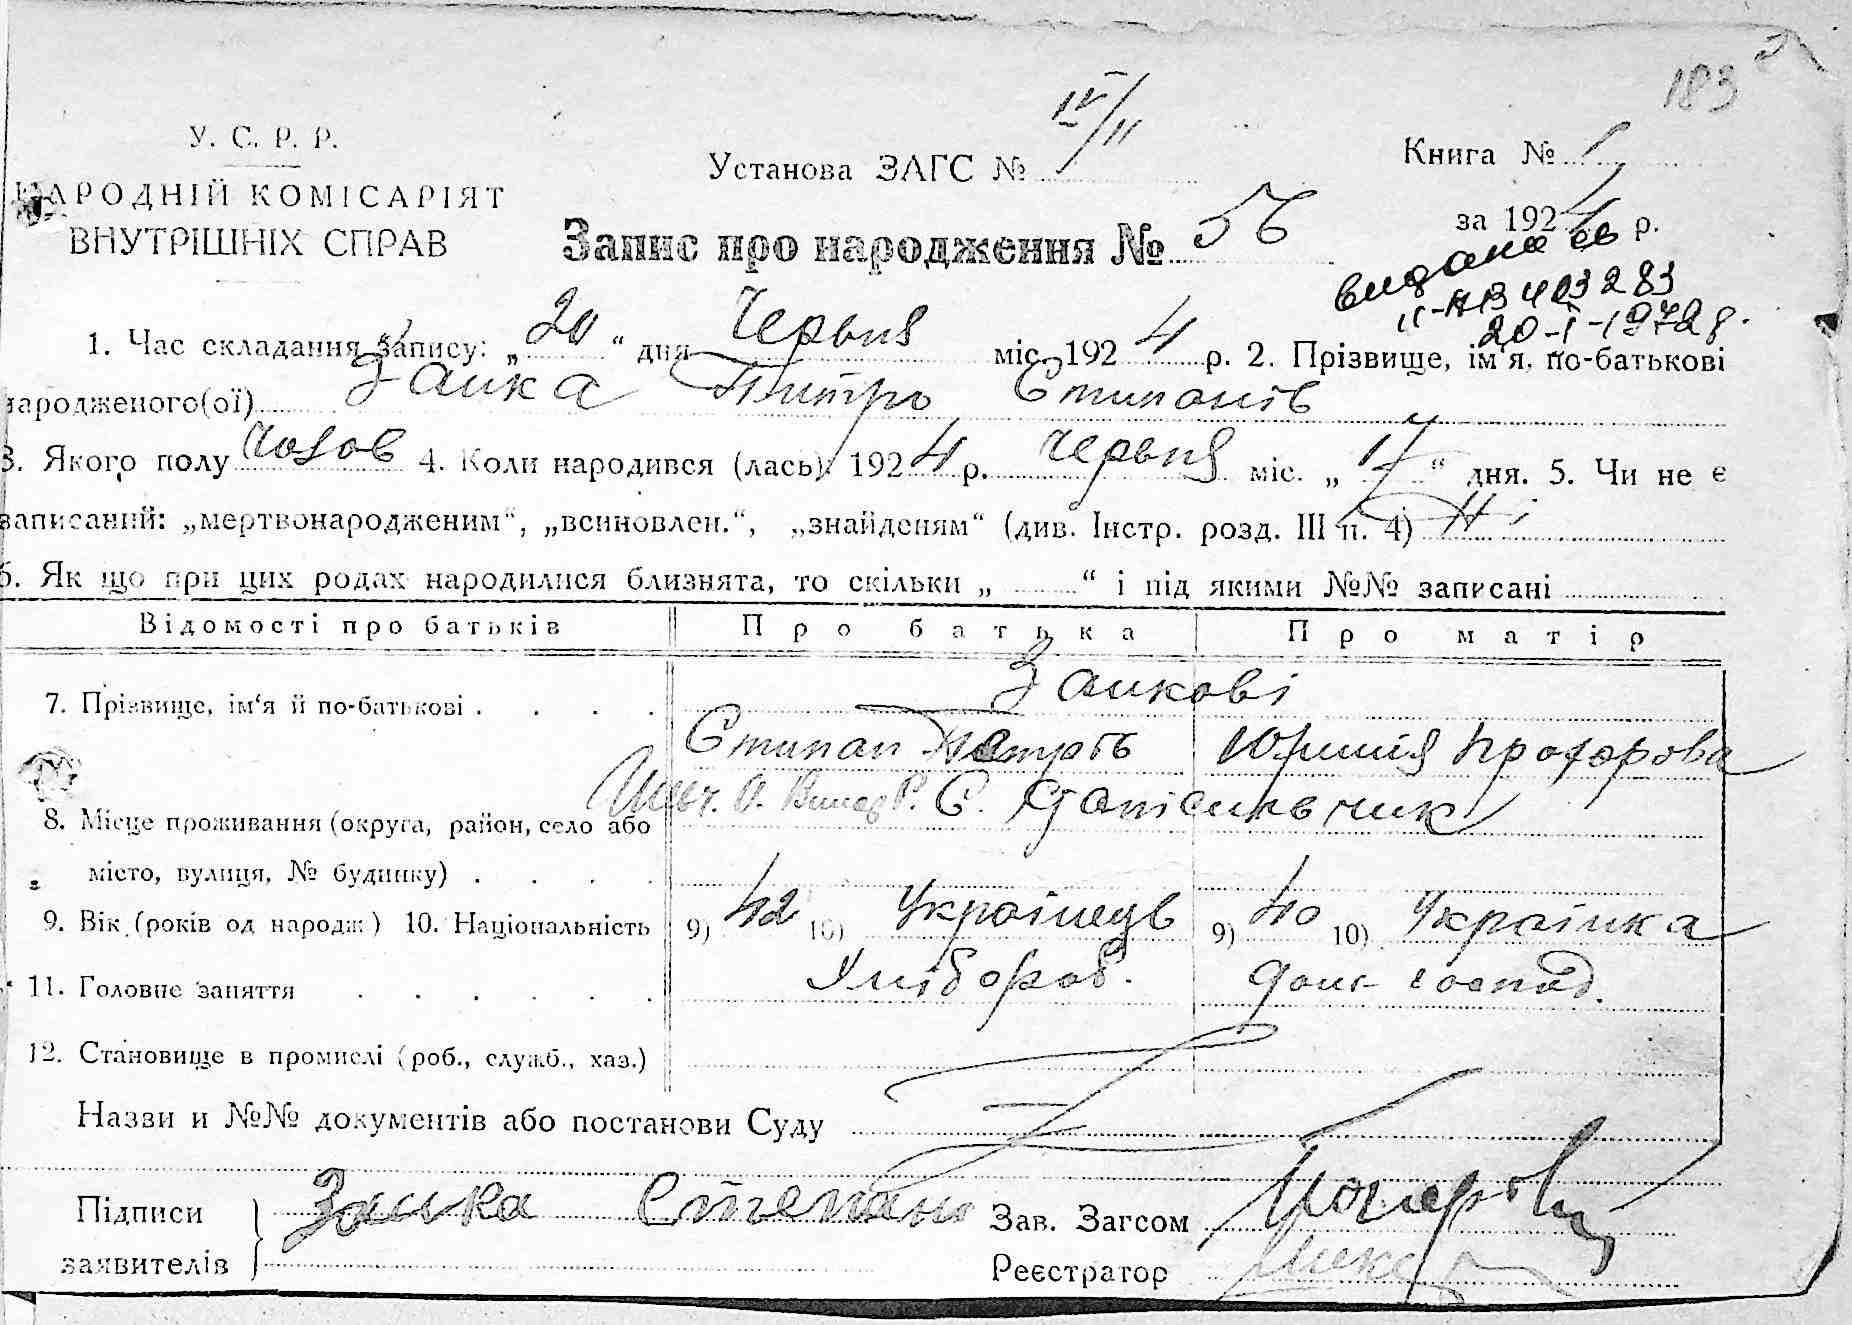 183
У. С. Р. Р.
НАРОДНІЙ КОМІСАРІЯТ
ВНУТРІШНІХ СПРАВ
Установа ЗАГС № IV/II
Книга №
за 1924 р.
Запис про народження № 56
видано св
II-НВ 403283
20-I-1972 р.
1. Час складання запису: „20“ дня Червня міс. 1924 р. 2. Прізвище, ім'я, по-батькові
народженого(ої) Заика Питро Стипанів
3. Якого полу Чолов 4. Коли народився (лась) 1924 р. червня міс. „17“ дня. 5. Чи не є
записаний: „мертвонародженим“, „всиновлен.“, „знайденям“ (див. Інстр. розд. III п. 4) Ні
6. Як що при цих родах народилися близнята, то скільки „ “ і під якими №№ записані
Відомості про батьків Про батька Про матір
7. Прізвище, ім'я й по-батькові . . . . Заикові
Стипан Петрів Юхимія Прохорова
8. Місце проживання (округа, район, село або С.
місто, вулиця, № будинку) . . . .
9. Вік (років од народж.) 10. Національність 9) 42 10) Українець 9) 40 10) Українка
11. Головне заняття . . . . . . Хлібороб. дом. господ.
12. Становище в промислі (роб., служб., хаз.)
Назви и №№ документів або постанови Суду
Підписи
заявителів
Заика Степан
Зав. Загсом
Реєстратор